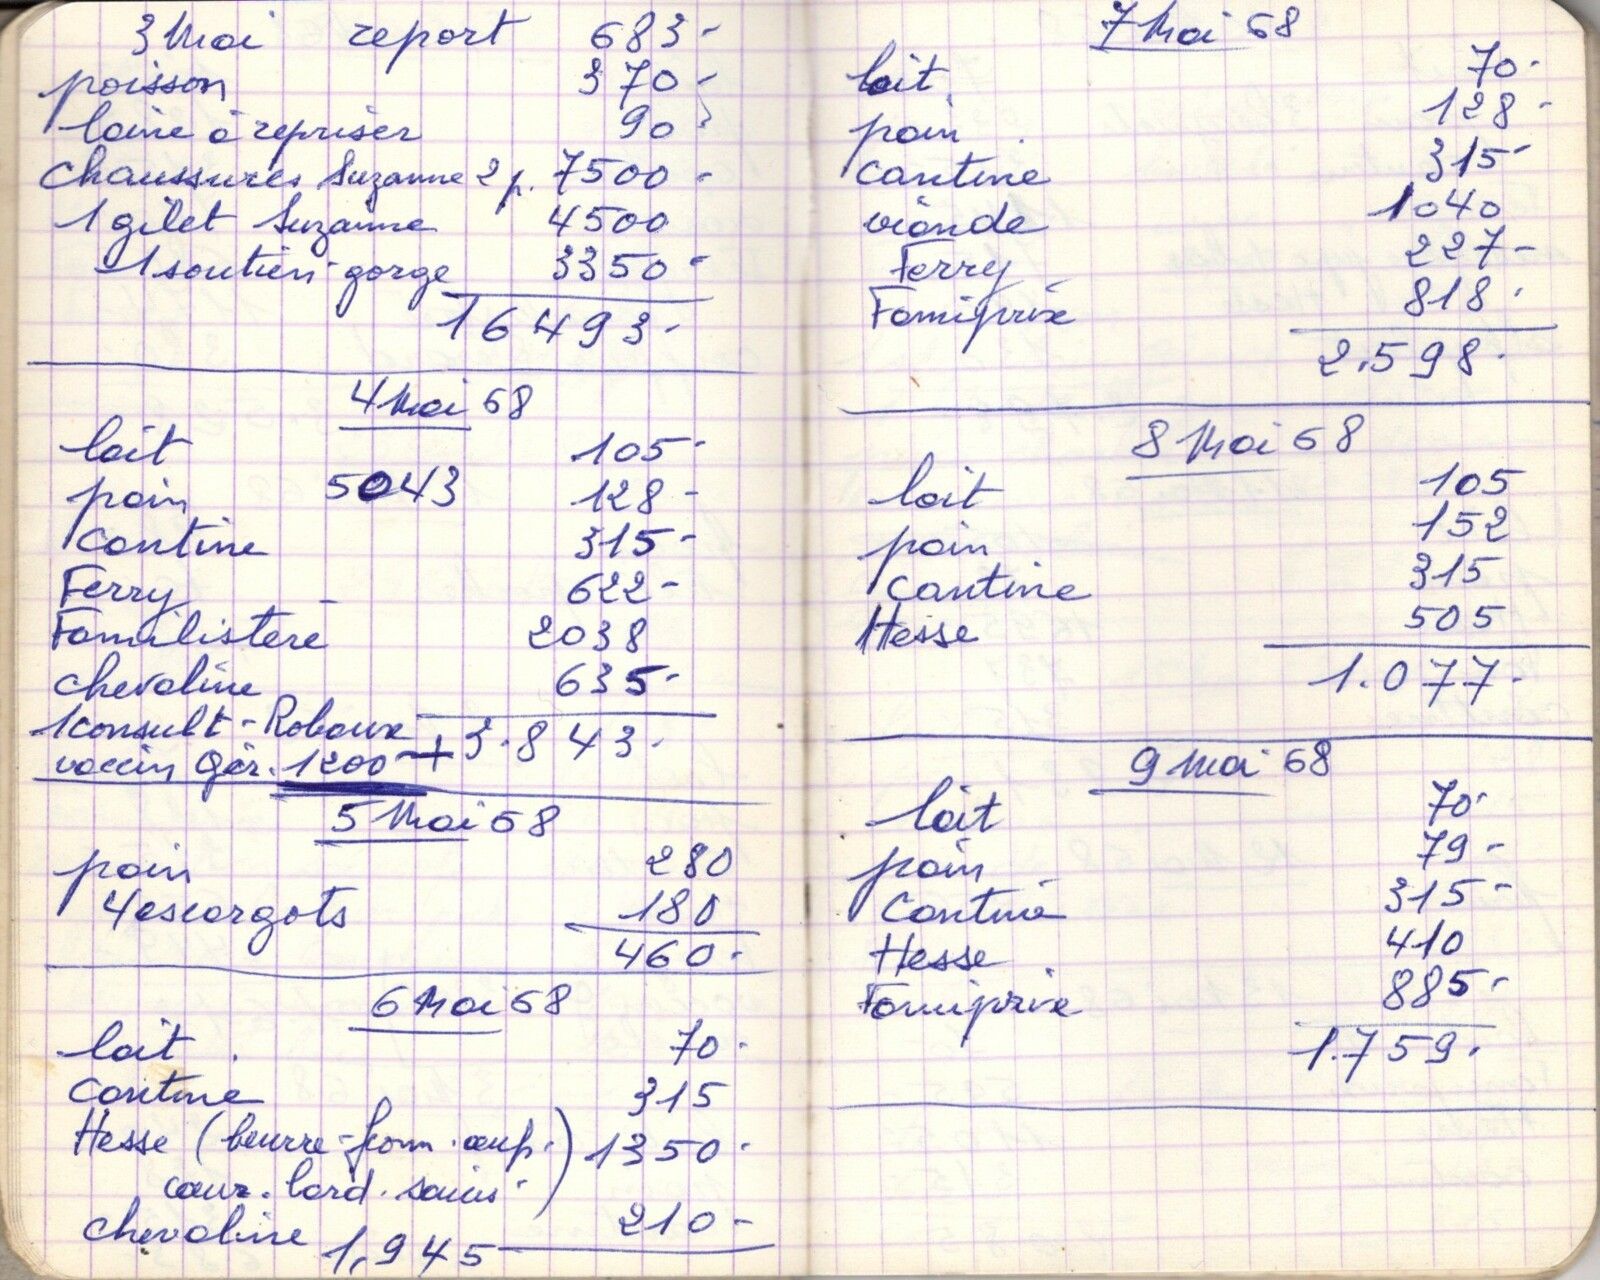 3 Mai report 683-
poisson 370-
laine à repriser 90-
chaussures Suzanne 2 p. 7500-
1 gilet Suzanne 4500
1 soutien-gorge 3350-
16493-
4 Mai 68
lait 105-
pain 5043 128-
Cantine 315-
Ferry 622-
Familistère 2038
chevaline 635-
1 consult-Roboux + 3.843.
vaccin Gér. 1200
5 Mai 68
pain 280
4 escargots 180
460.
6 Mai 68
lait. 70.
Cantine 315
Hesse (beurre-from. œufs.) 1350.
cœur. lard. sains.
chevaline 210-
1,945
7 Mai 68
lait 70.
pain 128-
Cantine 315-
viande 1040
Ferry 227-
Famiprix 818.
2.598.
8 Mai 68
lait 105
pain 152
Cantine 315
Hesse 505
1.077.
9 Mai 68
lait 70.
pain 79-
Cantine 315-
Hesse 410
Famiprix 885-
1.759.